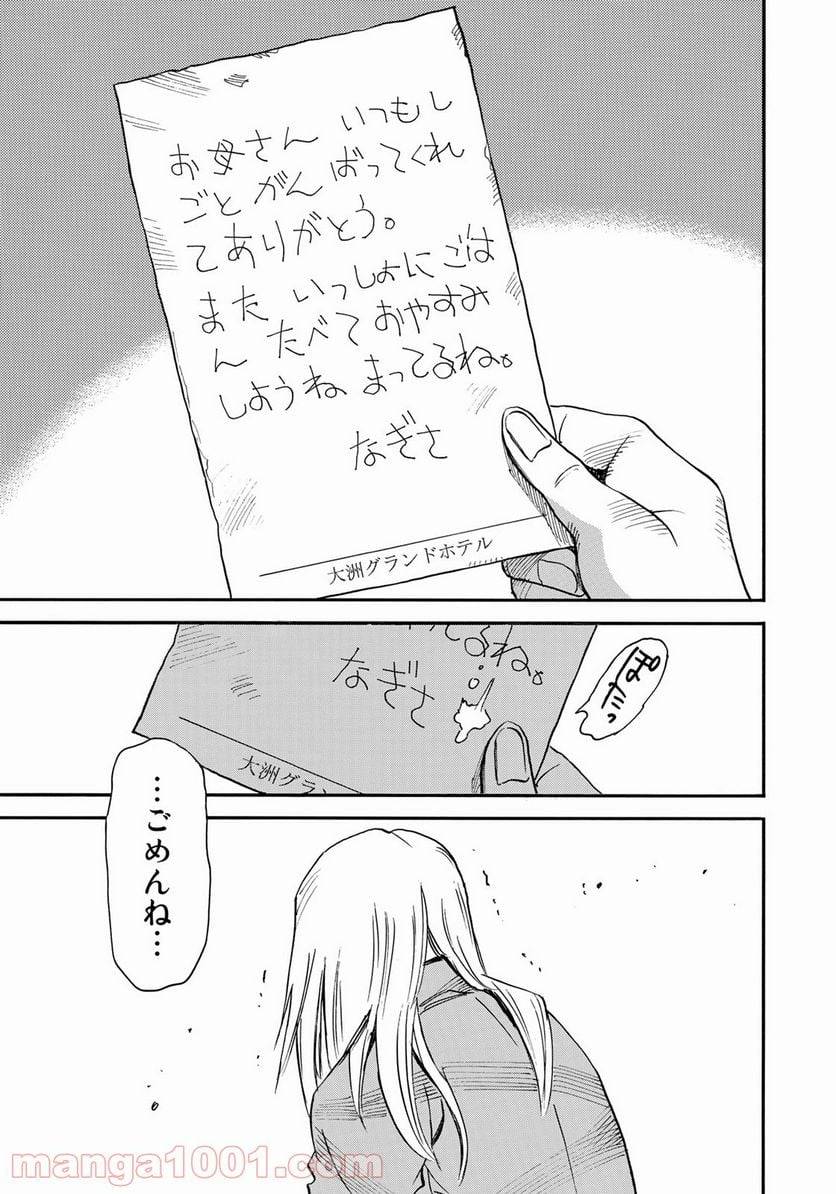 お母さん いつもし
ごと がんばってくれ
てありがとう。
また いっしょにごは
ん たべて おやすみ
しようね、まってるね。
なぎさ
大洲グランドホテル
てるね。
なぎさ
大洲グラン
ぽたっ
…ごめんね…
manga1001.com